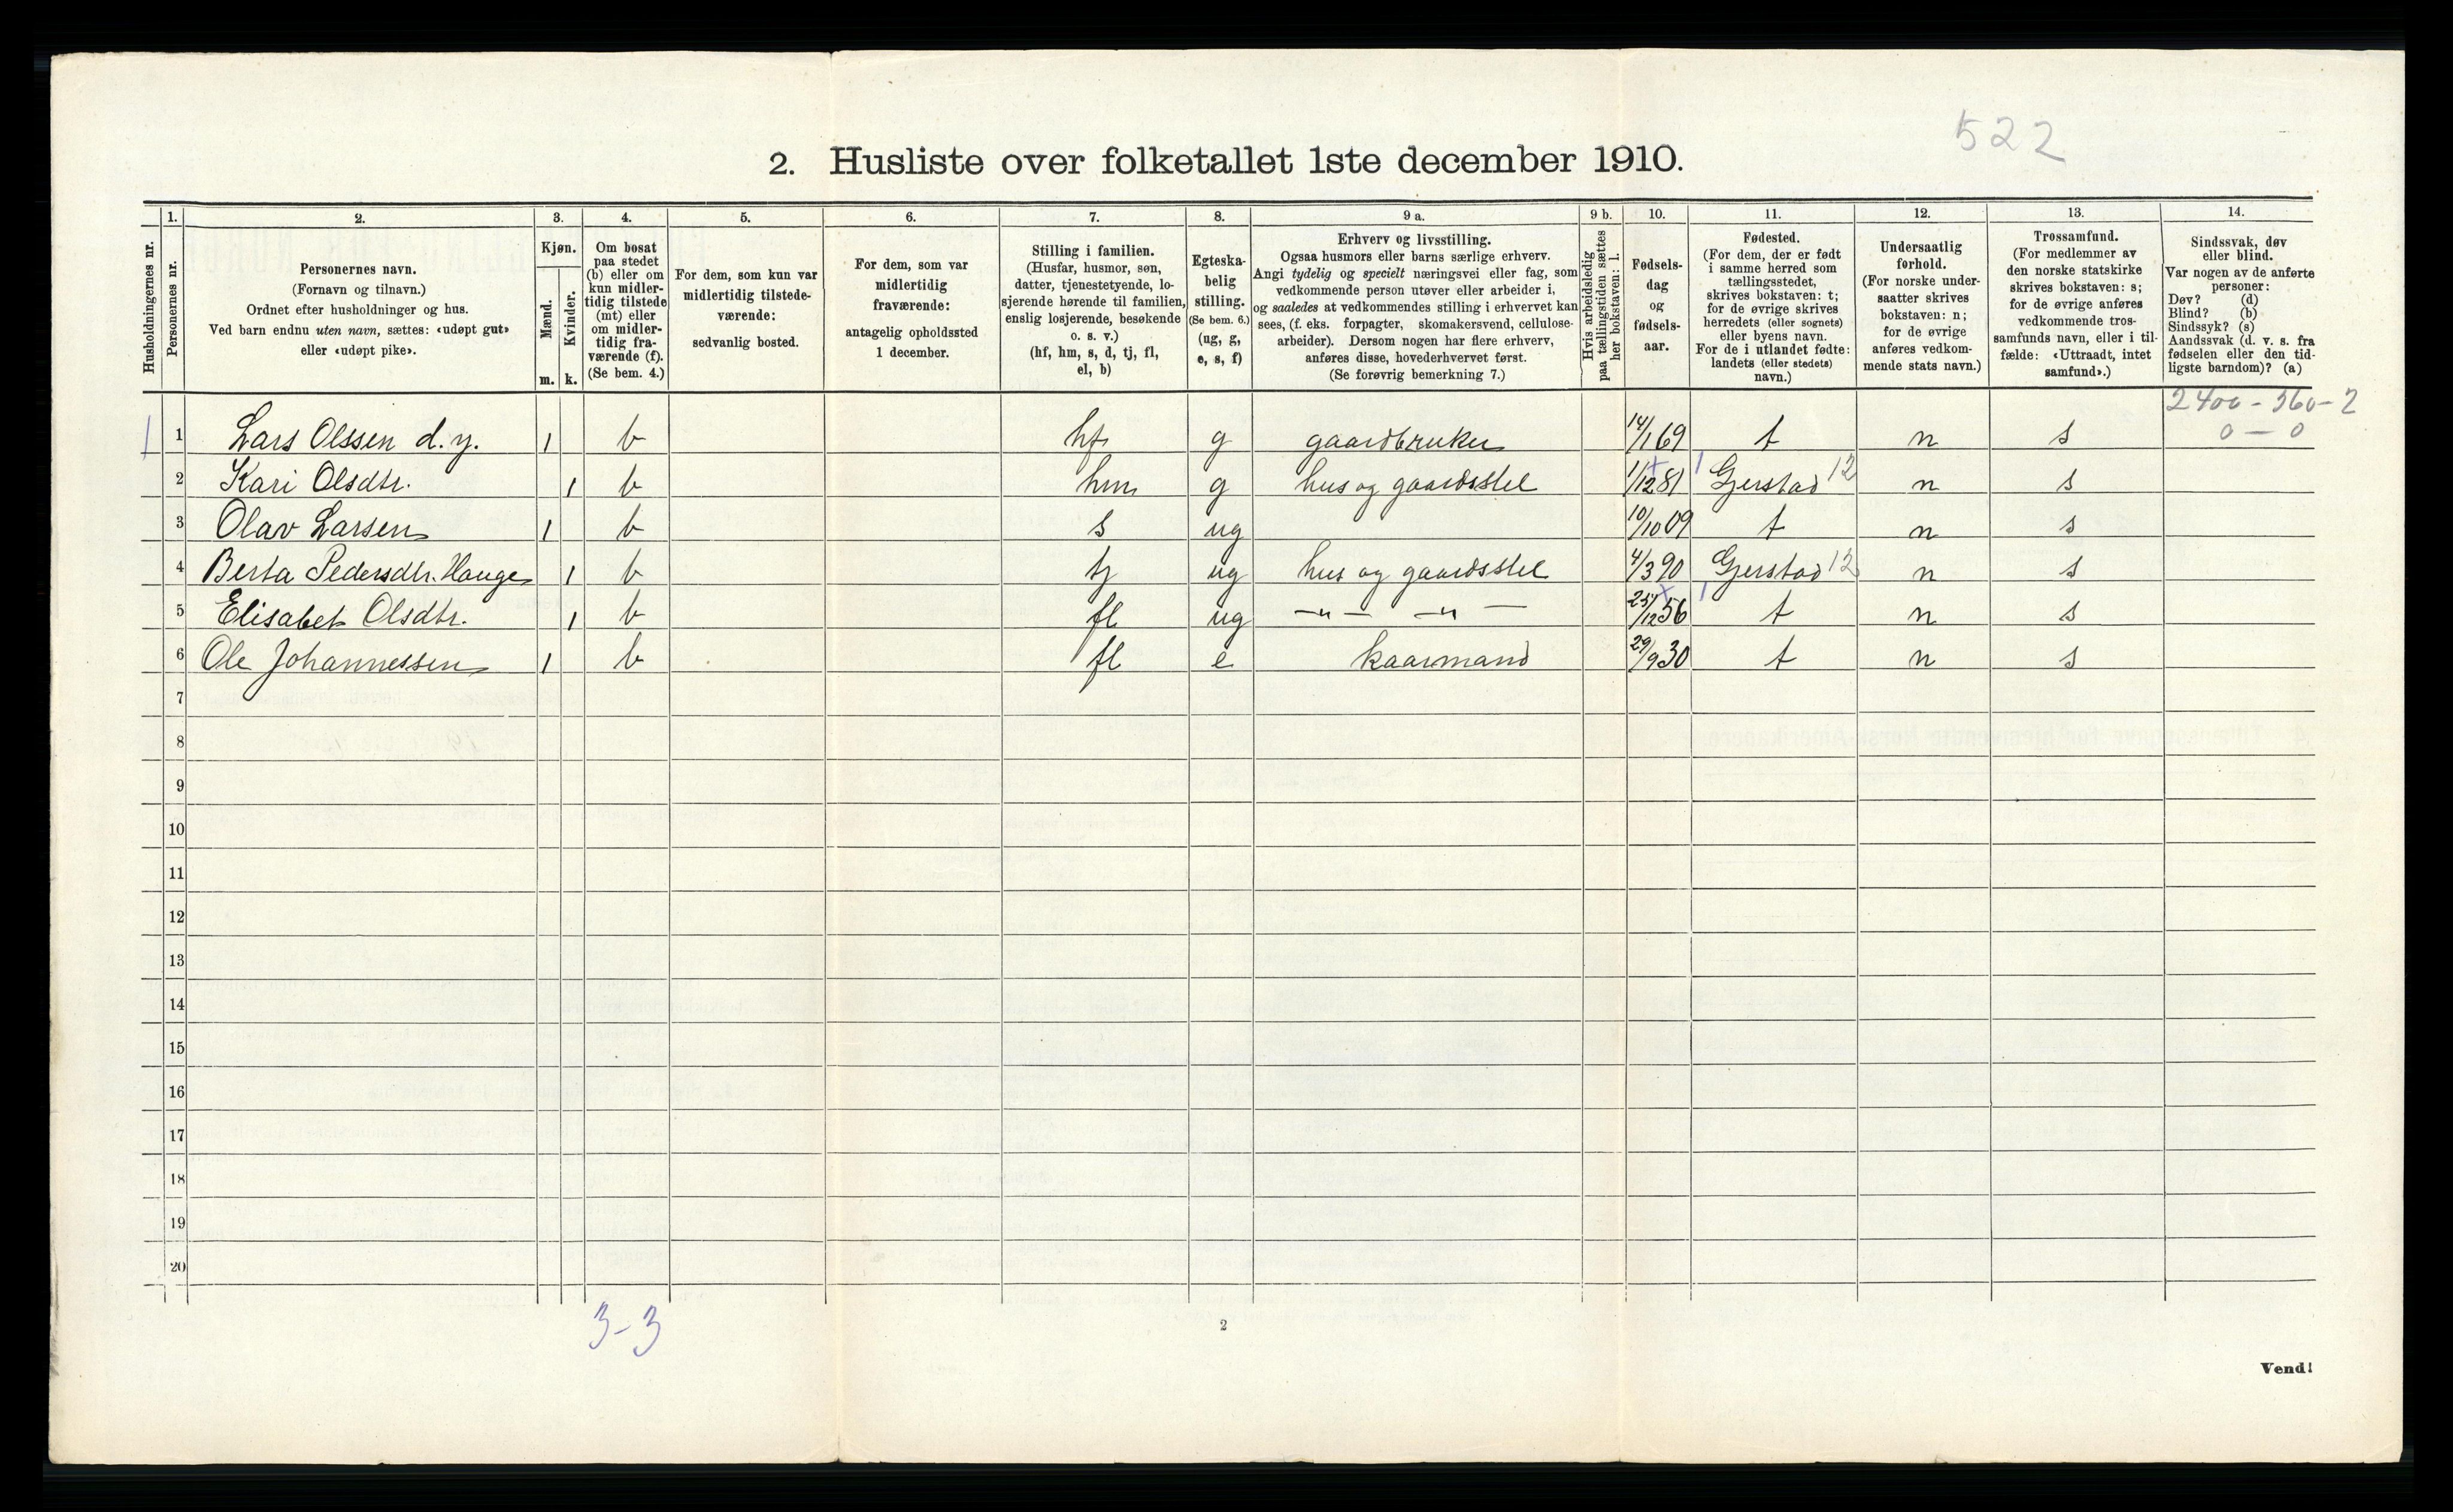 522
2. Husliste over folketallet 1ste december 1910.
Husholdningernes nr.
1. Personernes nr.
2. Personernes navn. (Fornavn og tilnavn.) Ordnet efter husholdninger og hus. Ved barn endnu uten navn, sættes: «udøpt gut» eller «udøpt pike».
3. Kjøn. Mænd. m. Kvinder. k.
4. Om bosat paa stedet (b) eller om kun midlertidig tilstede (mt) eller om midlertidig fraværende (f). (Se bem. 4.)
5. For dem, som kun var midlertidig tilstedeværende: sedvanlig bosted.
6. For dem, som var midlertidig fraværende: antagelig opholdssted 1 december.
7. Stilling i familien. (Husfar, husmor, søn, datter, tjenestetyende, losjerende hørende til familien, enslig losjerende, besøkende o. s. v.) (hf, hm, s, d, tj, fl, el, b)
8. Egteskabelig stilling. (Se bem. 6.) (ug, g, e, s, f)
9 a. Erhverv og livsstilling. Ogsaa husmors eller barns særlige erhverv. Angi tydelig og specielt næringsvei eller fag, som vedkommende person utøver eller arbeider i, og saaledes at vedkommendes stilling i erhvervet kan sees, (f. eks. forpagter, skomakersvend, cellulosearbeider). Dersom nogen har flere erhverv, anføres disse, hovederhvervet først. (Se forøvrig bemerkning 7.)
9 b. Hvis arbeidsledig paa tællingstiden sættes her bokstaven: l.
10. Fødselsdag og fødselsaar.
11. Fødested. (For dem, der er født i samme herred som tællingsstedet, skrives bokstaven: t; for de øvrige skrives herredets (eller sognets) eller byens navn. For de i utlandet fødte: landets (eller stedets) navn.)
12. Undersaatlig forhold. (For norske undersaatter skrives bokstaven: n; for de øvrige anføres vedkommende stats navn.)
13. Trossamfund. (For medlemmer av den norske statskirke skrives bokstaven: s; for de øvrige anføres vedkommende trossamfunds navn, eller i tilfælde: «Uttraadt, intet samfund».)
14. Sindssvak, døv eller blind. Var nogen av de anførte personer: Døv? (d) Blind? (b) Sindssyk? (s) Aandssvak (d. v. s. fra fødselen eller den tidligste barndom)? (a)
2400 - 560 - 2
0 - 0
1 1 Lars Olssen d. y. 1 b hf g gaardbruker 14/1 69 t n s
2 Kari Olsdtr. 1 b hm g hus og gaardsstel 1/12 81 Gjerstad 12 n s
3 Olav Larsen 1 b s ug 10/10 09 t n s
4 Berta Pedersdtr. Hauge 1 b tj ug hus og gaardsstel 4/3 90 Gjerstad 12 n s
5 Elisabet Olsdtr. 1 b fl ug —"— —"— 25/12 56 t n s
6 Ole Johannessen 1 b fl e kaarmand 29/9 30 t n s
7
8
9
10
11
12
13
14
15
16
17
18
19
20
3-3
2
Vend!